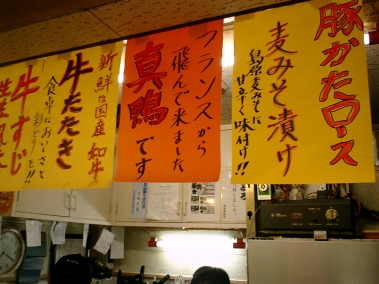 豚かたロース
麦みそ漬け
島原麦みそに
甘辛く味付け!!
フランスから
飛んで来ました
真鴨です
新鮮な国産和牛
牛たたき
食卓においしさと
牛すじ